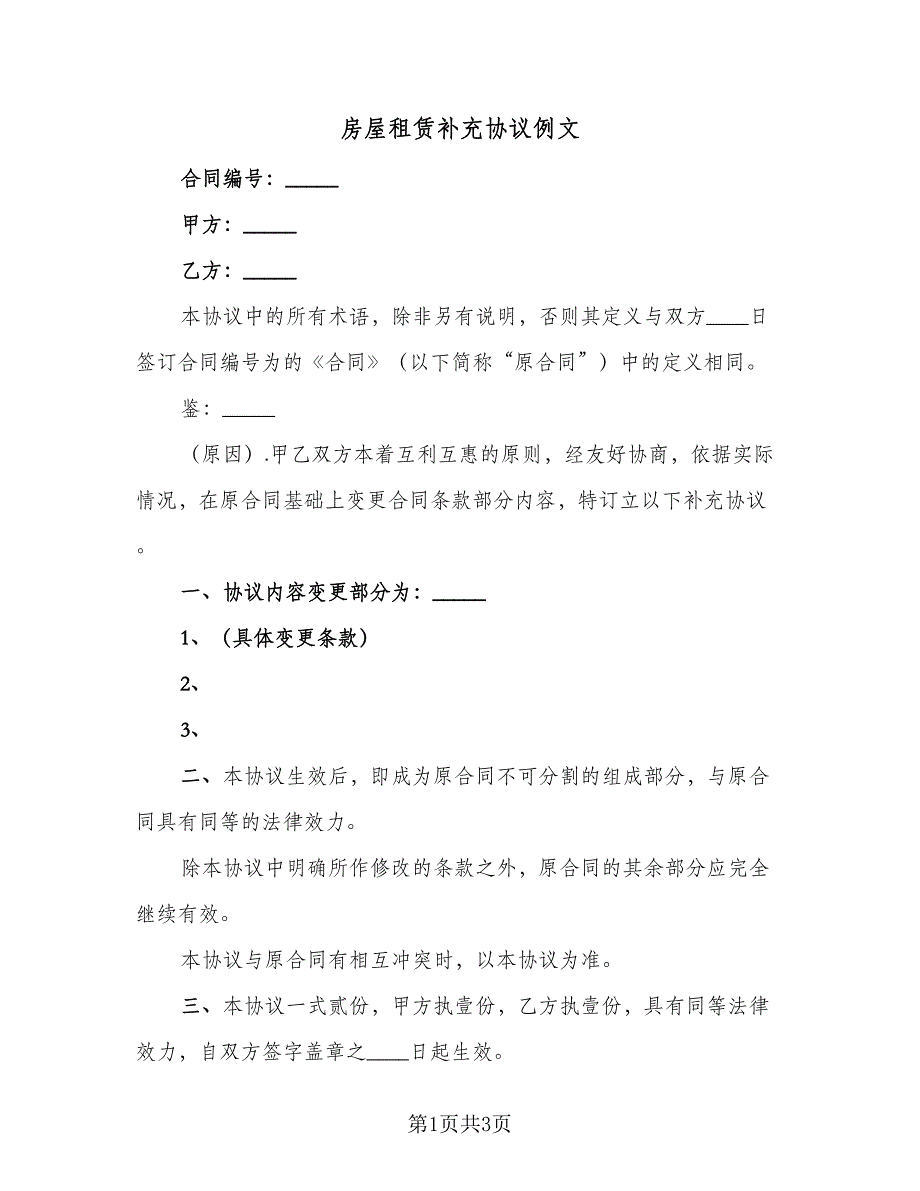 房屋租赁补充协议例文
合同编号：_____
甲方：_____
乙方：_____
本协议中的所有术语，除非另有说明，否则其定义与双方____日
签订合同编号为的《合同》（以下简称“原合同”）中的定义相同。
鉴：_____
（原因）.甲乙双方本着互利互惠的原则，经友好协商，依据实际
情况，在原合同基础上变更合同条款部分内容，特订立以下补充协议
。
一、协议内容变更部分为：_____
1、（具体变更条款）
2、
3、
二、本协议生效后，即成为原合同不可分割的组成部分，与原合
同具有同等的法律效力。
除本协议中明确所作修改的条款之外，原合同的其余部分应完全
继续有效。
本协议与原合同有相互冲突时，以本协议为准。
三、本协议一式贰份，甲方执壹份，乙方执壹份，具有同等法律
效力，自双方签字盖章之____日起生效。
第1页共3页